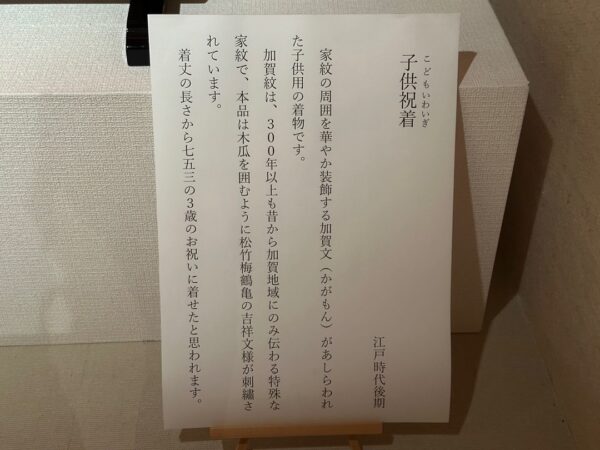 こどもいわいぎ
子供祝着
江戸時代後期
家紋の周囲を華やか装飾する加賀文（かがもん）があしらわれ
た子供用の着物です。
加賀紋は、３００年以上も昔から加賀地域にのみ伝わる特殊な
家紋で、本品は木瓜を囲むように松竹梅鶴亀の吉祥文様が刺繡さ
れています。
着丈の長さから七五三の３歳のお祝いに着せたと思われます。